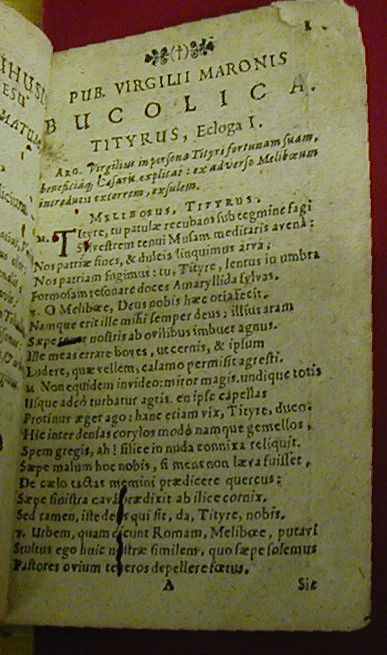 IHUSI
ESU
MATUM
1
(†)
PUB. VIRGILII MARONIS
BUCOLICA.
TITYRUS, Ecloga I.
ARG. Virgilius in persona Tityri fortunam suam,
beneficiáq; Cæsaris explicat: ex adverso Melibœum
introducit exterrem, exsulem.
MELIBOEUS, TITYRUS.
M. Tityre, tu patulæ recubans sub tegmine fagi
Silvestrem tenui Musam meditaris avena:
Nos patriæ fines, & dulcia linquimus arva;
Nos patriam fugimus: tu, Tityre, lentus in umbra
Formosam resonare doces Amaryllida sylvas.
T. O Melibœe, Deus nobis hæc otia fecit.
Namque erit ille mihi semper deus; illius aram
Sæpe tener nostris ab ovilibus imbuet agnus.
Ille meas errare boves, ut cernis, & ipsum
Ludere, quæ vellem, calamo permisit agresti.
M Non equidem invideo: miror magis. undique totis
Usque adeò turbatur agris. en ipse capellas
Protinus æger ago: hanc etiam vix, Tityre, duco.
Hic inter densas corylos modò namque gemellos,
Spem gregis, ah! silice in nuda connixa reliquit.
Sæpe malum hoc nobis, si mens non læva fuisset,
De cælo tactas memini prædicere quercus:
Sæpe sinistra cava prædixit ab ilice cornix.
Sed tamen, iste deus qui sit, da, Tityre, nobis.
T. Urbem, quam dicunt Romam, Melibœe, putavi
Stultus ego huic nostræ similem, quo sæpe solemus
Pastores ovium teneros depellere fœtus.
A
Sic